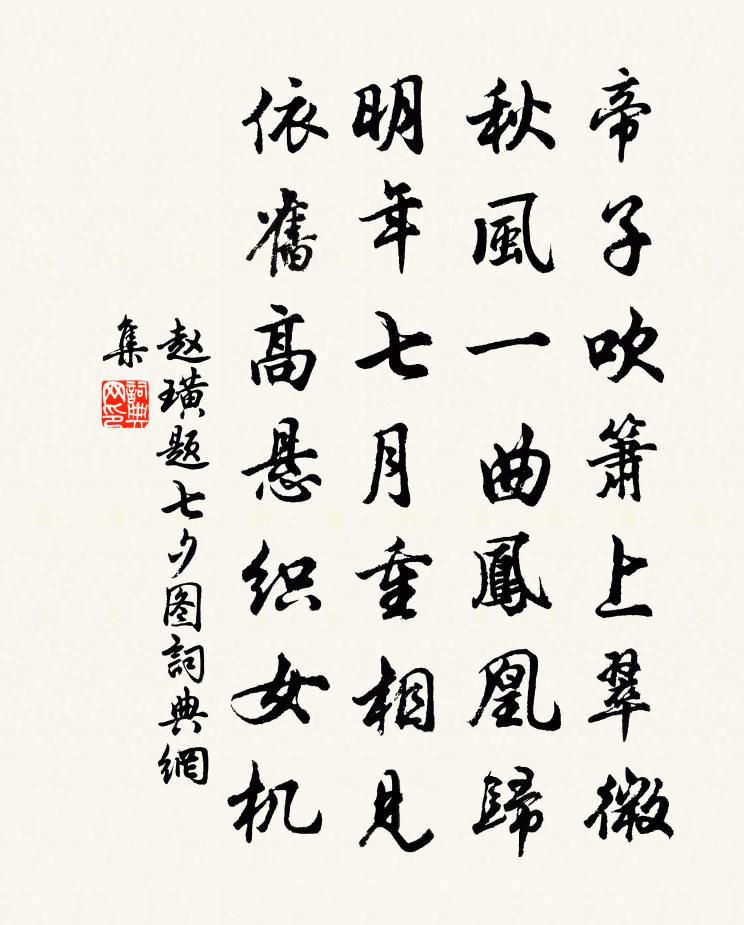 帝子吹箫上翠微
秋風一曲鳳凰歸
明年七月重相見
依舊高悬织女机
赵璜题七夕图詞典網
集
詞典
网印